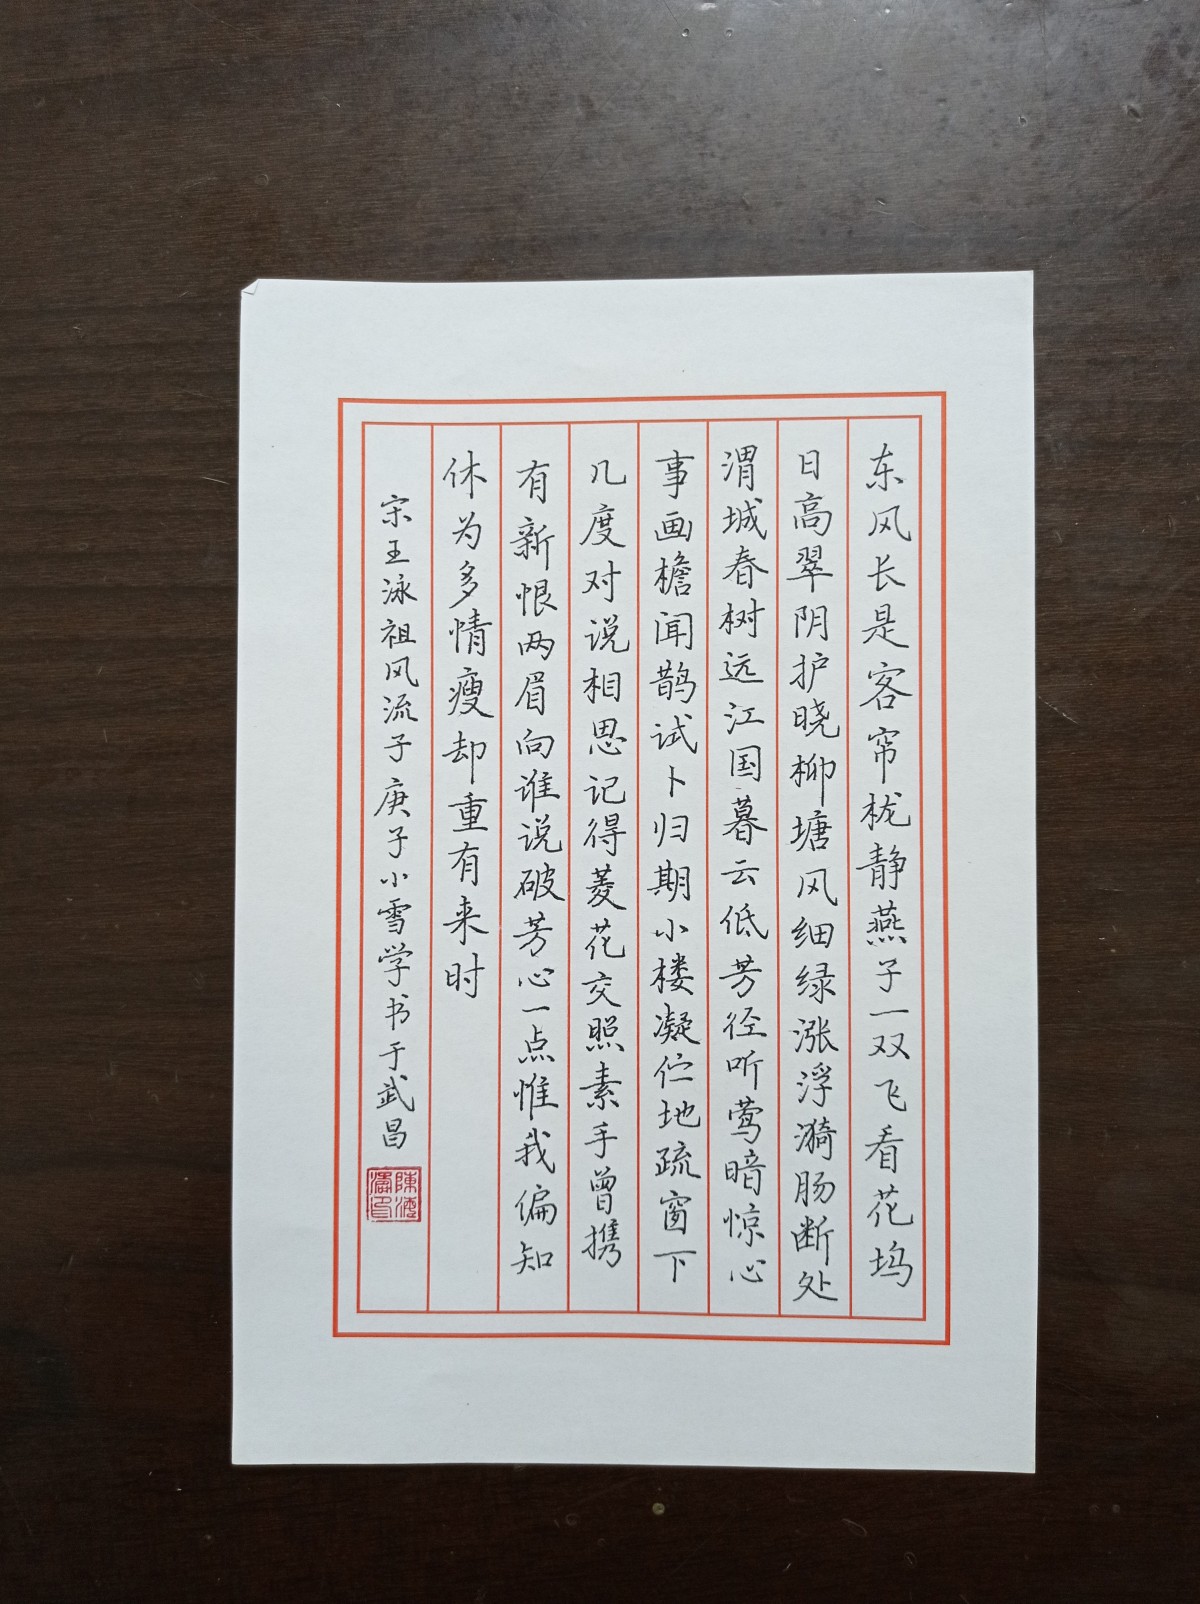 东风长是客帘栊静燕子一双飞看花坞
日高翠阴护晓柳塘风细绿涨浮漪肠断处
渭城春树远江国暮云低芳径听莺暗惊心
事画檐闻鹊试卜归期小楼凝伫地疏窗下
几度对说相思记得菱花交照素手曾携
有新恨两眉向谁说破芳心一点惟我偏知
休为多情瘦却重有来时
宋王泳祖风流子庚子小雪学书于武昌